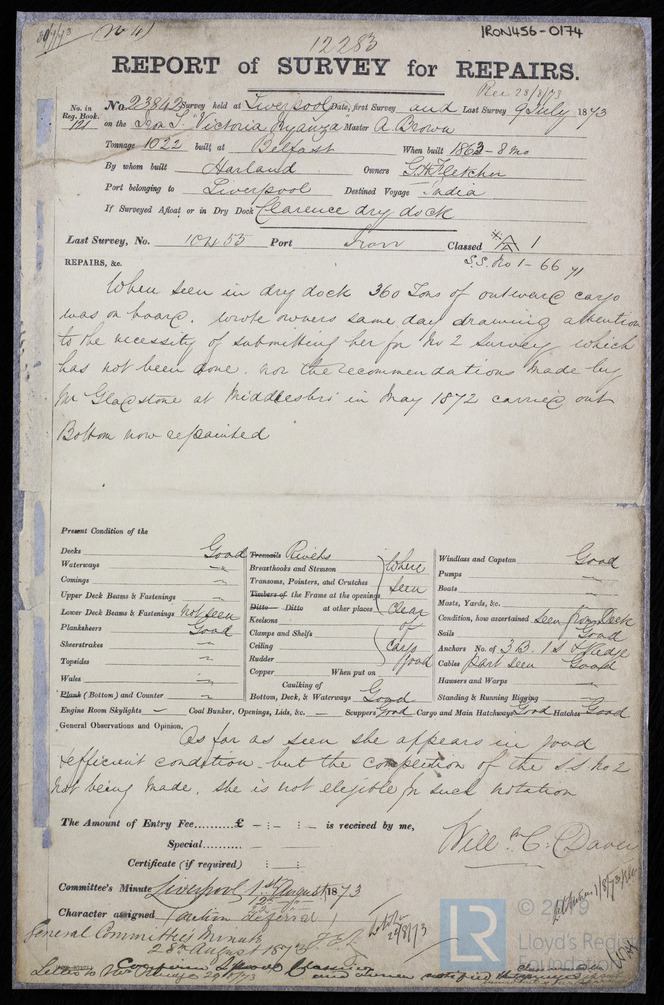 IRON456-0174
12283
REPORT of SURVEY for REPAIRS.
Rec 28/8/73
No. in Reg. Book. 121
No. 23842 Survey held at Liverpool Date, first Survey and Last Survey 9 July 1873
on the Iron S. "Victoria Nyanza" Master A. Brown
Tonnage 1022 built at Belfast When built 1863 - 8 mo
By whom built Harland Owners G H Fletcher
Port belonging to Liverpool Destined Voyage India
If Surveyed Afloat or in Dry Dock Clarence dry dock
Last Survey, No. 10455 Port Classed A 1
S.S. No 1 - 66
REPAIRS, &c.
When seen in dry dock 360 Tons of outward cargo
was on board. wrote owners same day drawing attention
to the necessity of submitting her for No 2 Survey which
has not been done. nor the recommendations made by
Mr Gladstone at Middlesbro in May 1872 carried out
Bottom now repainted
Present Condition of the
Decks Good
Waterways "
Comings "
Upper Deck Beams & Fastenings "
Lower Deck Beams & Fastenings not seen
Planksheers Good
Sheerstrakes "
Topsides "
Wales "
Plank (Bottom) and Counter "
Treenails Rivets
Breasthooks and Stemson
Transoms, Pointers, and Crutches
Timbers of the Frame at the openings
Ditto Ditto at other places
Keelsons
Clamps and Shelfs
Ceiling
Rudder
where
seen
clear
of
cargo
good
Copper When put on
Caulking of
Bottom, Deck, & Waterways Good
Windlass and Capstan Good
Pumps "
Boats "
Masts, Yards, &c. "
Condition, how ascertained seen from Deck
Sails Good
Anchors No. of 3 B. 1 S
Cables part seen Good
Hausers and Warps "
Standing & Running Rigging "
Engine Room Skylights — Coal Bunker, Openings, Lids, &c. — Scuppers Good Cargo and Main Hatchways Good Hatches Good
General Observations and Opinion,
As far as seen she appears in good
& efficient condition. but the completion of the S S No 2
not being made, she is not eligible for such notation
The Amount of Entry Fee..........£ - : - : - is received by me,
Special..........
Certificate (if required) : :
Committee's Minute Liverpool 1st August 1873
Character assigned (action deferred)
General Committee's Minute
28th August 1873
© 2019
LR
Lloyd's Register
Foundation